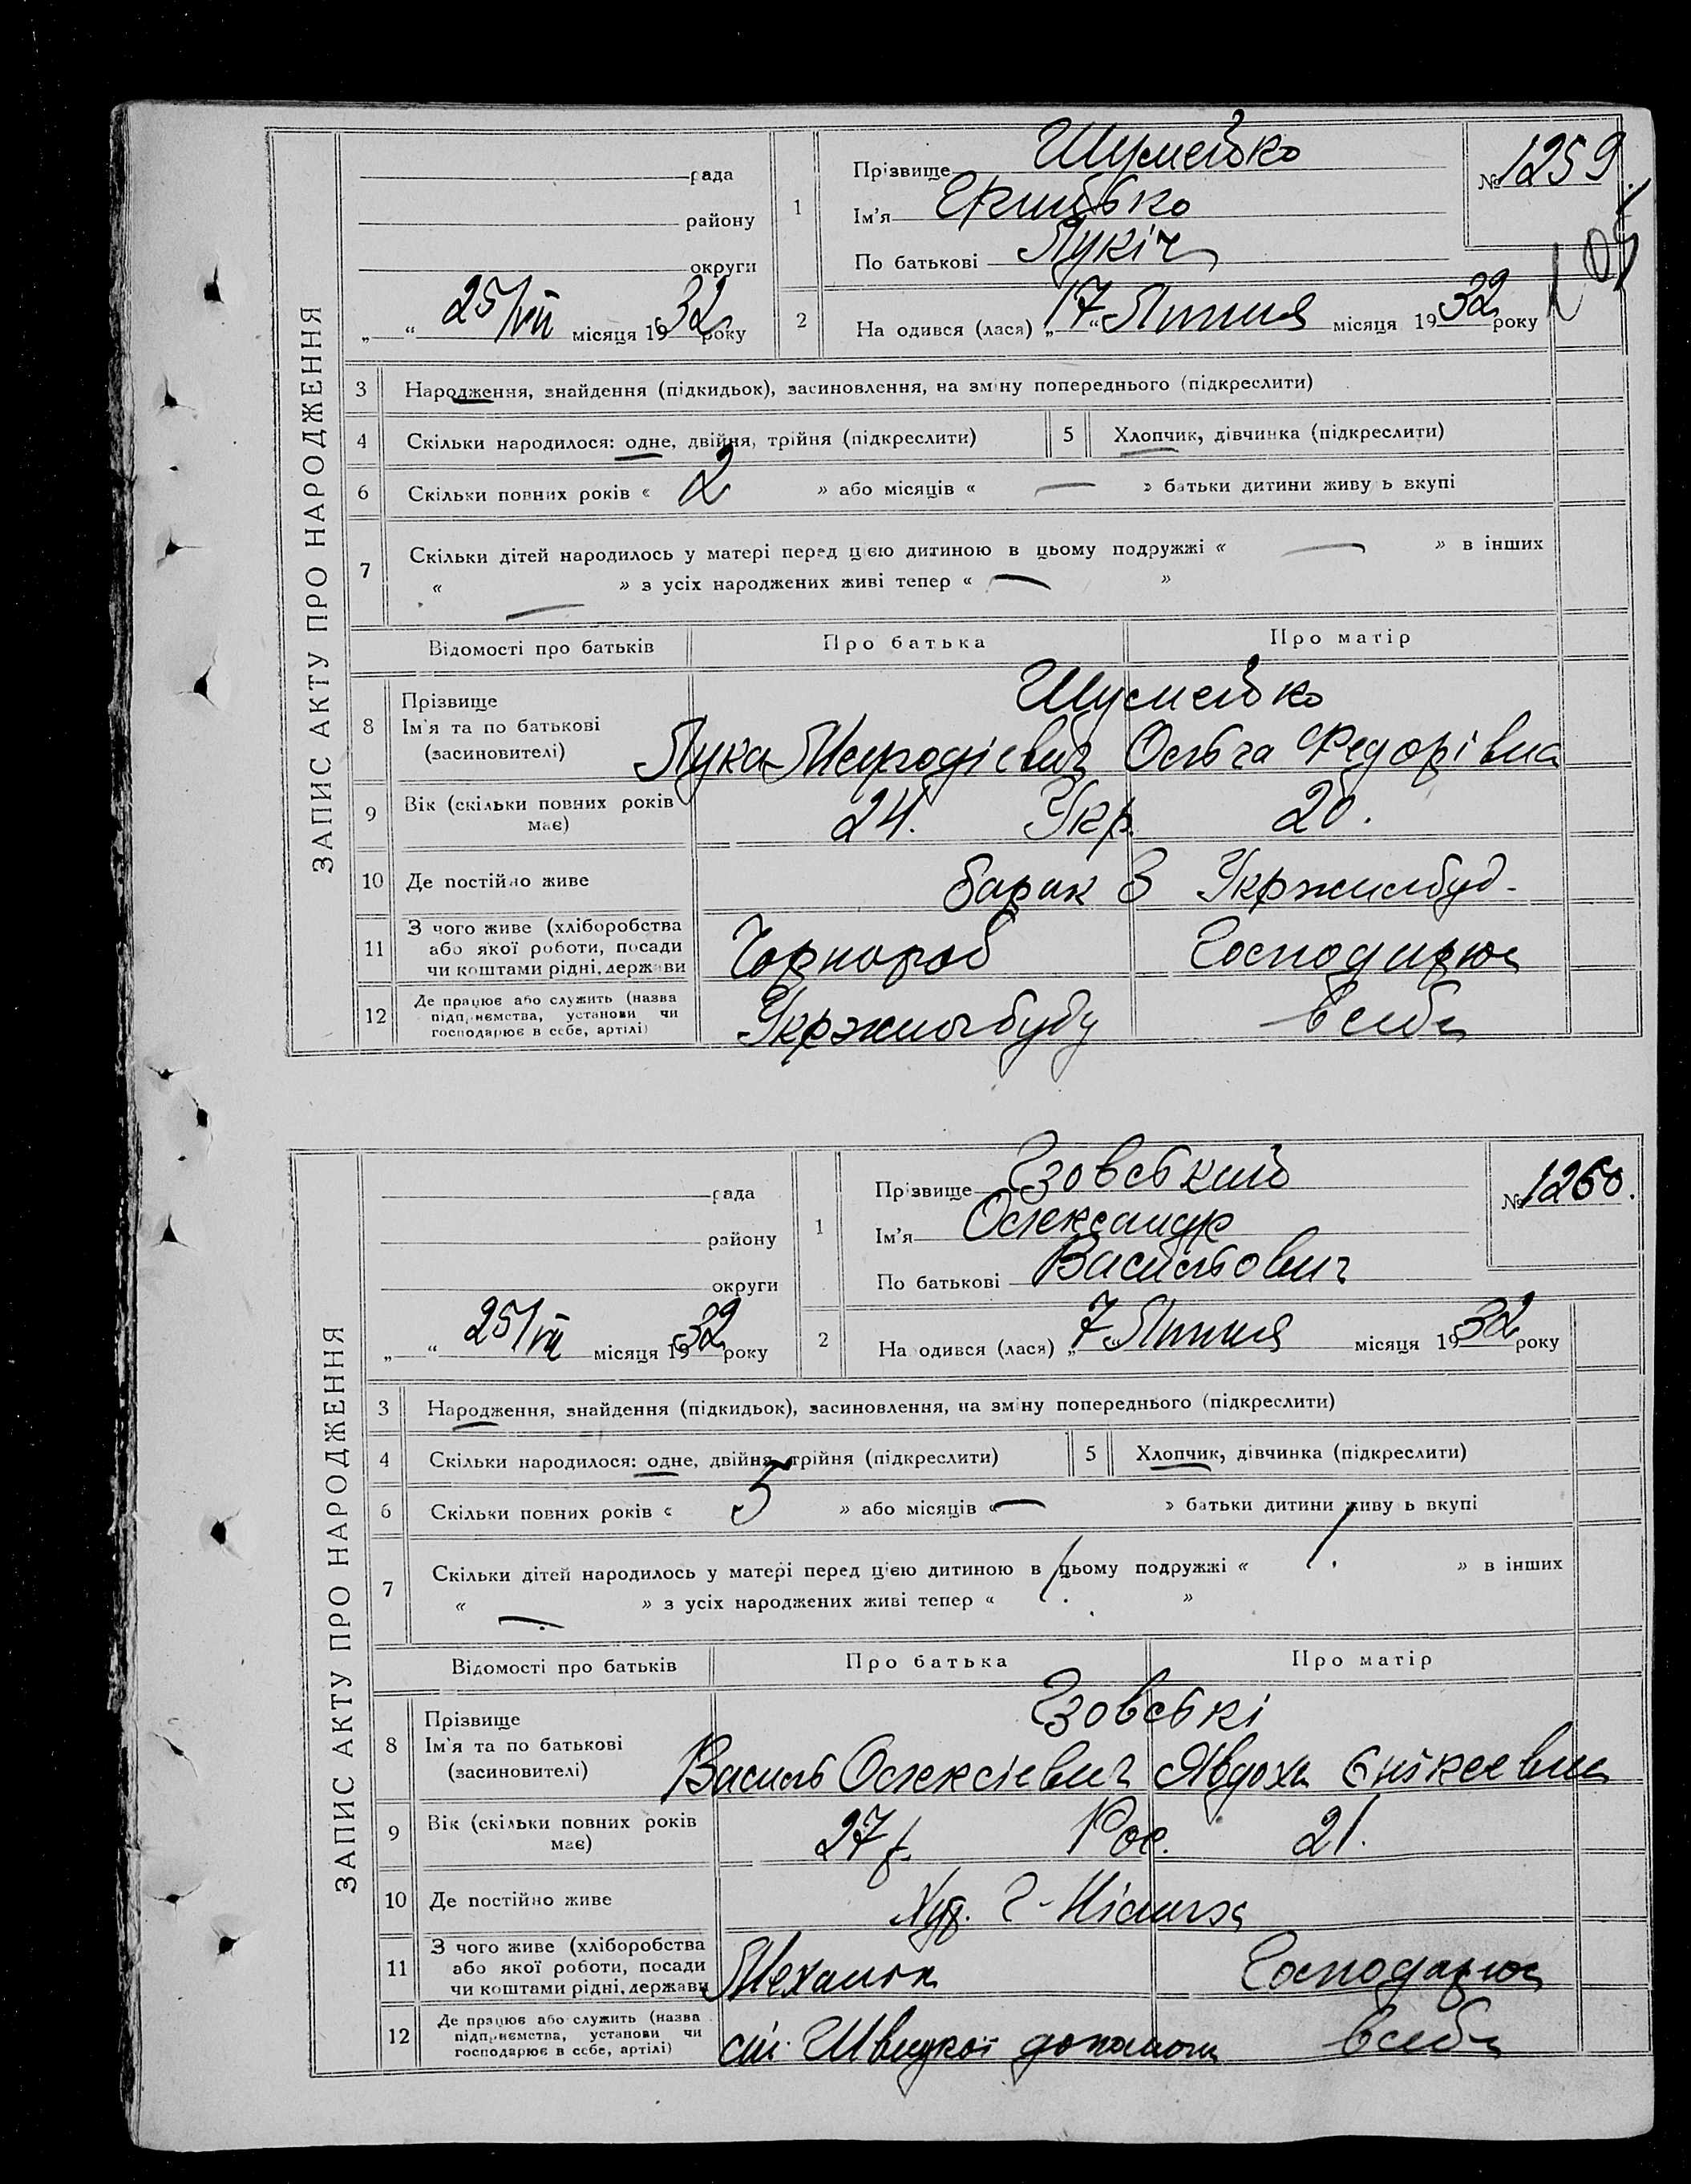 ЗАПИС АКТУ ПРО НАРОДЖЕННЯ
рада
району
округи
„ “ 25/VII місяця 1932 року
1
Прізвище Шумейко
Ім'я
По батькові Лукіч
№ 1259.
2
На одився (лася) „17“ Липня місяця 1932 року
3 Народження, знайдення (підкидьок), засиновлення, на зміну попереднього (підкреслити)
4 Скільки народилося: одне, двійня, трійня (підкреслити) 5 Хлопчик, дівчинка (підкреслити)
6 Скільки повних років « 2 » або місяців « — » батьки дитини живу ь вкупі
7 Скільки дітей народилось у матері перед цією дитиною в цьому подружжі « — » в інших
« — » з усіх народжених живі тепер « — »
Відомості про батьків Про батька Про матір
8 Прізвище Ім'я та по батькові (засиновителі)
Шумейко
Лука Ольга Федорівна
9 Вік (скільки повних років має) 24. Укр. 20.
10 Де постійно живе барак 3 Укржилбуд.
11 З чого живе (хліборобства або якої роботи, посади чи коштами рідні, держави Чорнороб Господарює
12 Де працює або служить (назва підприємства, установи чи господарює в себе, артілі) Укржилбуду в себе
ЗАПИС АКТУ ПРО НАРОДЖЕННЯ
рада
району
округи
„ “ 25/VII місяця 1932 року
1
Прізвище Гзовський
Ім'я Олександр
По батькові Васильович
№ 1260.
2
На одився (лася) „7“ Липня місяця 1932 року
3 Народження, знайдення (підкидьок), засиновлення, на зміну попереднього (підкреслити)
4 Скільки народилося: одне, двійня, трійня (підкреслити) 5 Хлопчик, дівчинка (підкреслити)
6 Скільки повних років « 5 » або місяців « — » батьки дитини живу ь вкупі
7 Скільки дітей народилось у матері перед цією дитиною в цьому подружжі « 1. » в інших
« — » з усіх народжених живі тепер « 1. »
Відомості про батьків Про батька Про матір
8 Прізвище Ім'я та по батькові (засиновителі)
Гзовські
Василь Олексієвич Явдоха
9 Вік (скільки повних років має) 27 р. Рос. 21.
10 Де постійно живе Хут.
11 З чого живе (хліборобства або якої роботи, посади чи коштами рідні, держави Механік Господарює
12 Де працює або служить (назва підприємства, установи чи господарює в себе, артілі) Швидкої допомоги в себе